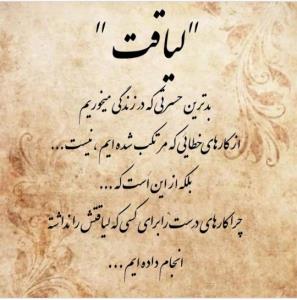 "لیاقت"
بدترین حسرتی که در زندگی میخوریم
از کارهای خطایی که مرتکب شده ایم، نیست...
بلکه از این است که...
چرا کارهای درست را برای کسی که لیاقتش را نداشته
انجام داده ایم...